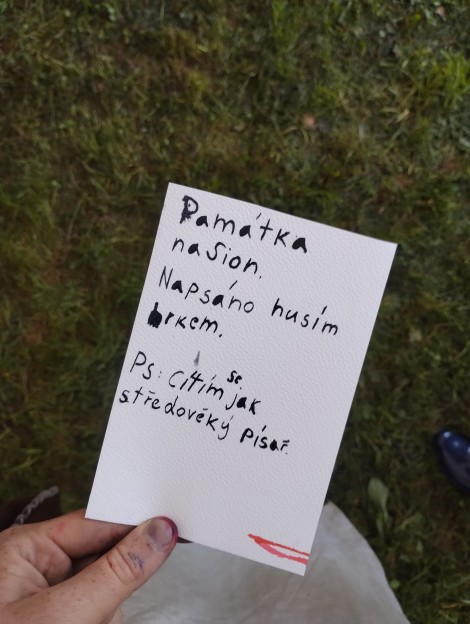 Památka
na Sion.
Napsáno husím
brkem.
Ps: Cítím se jak
středověký písař.